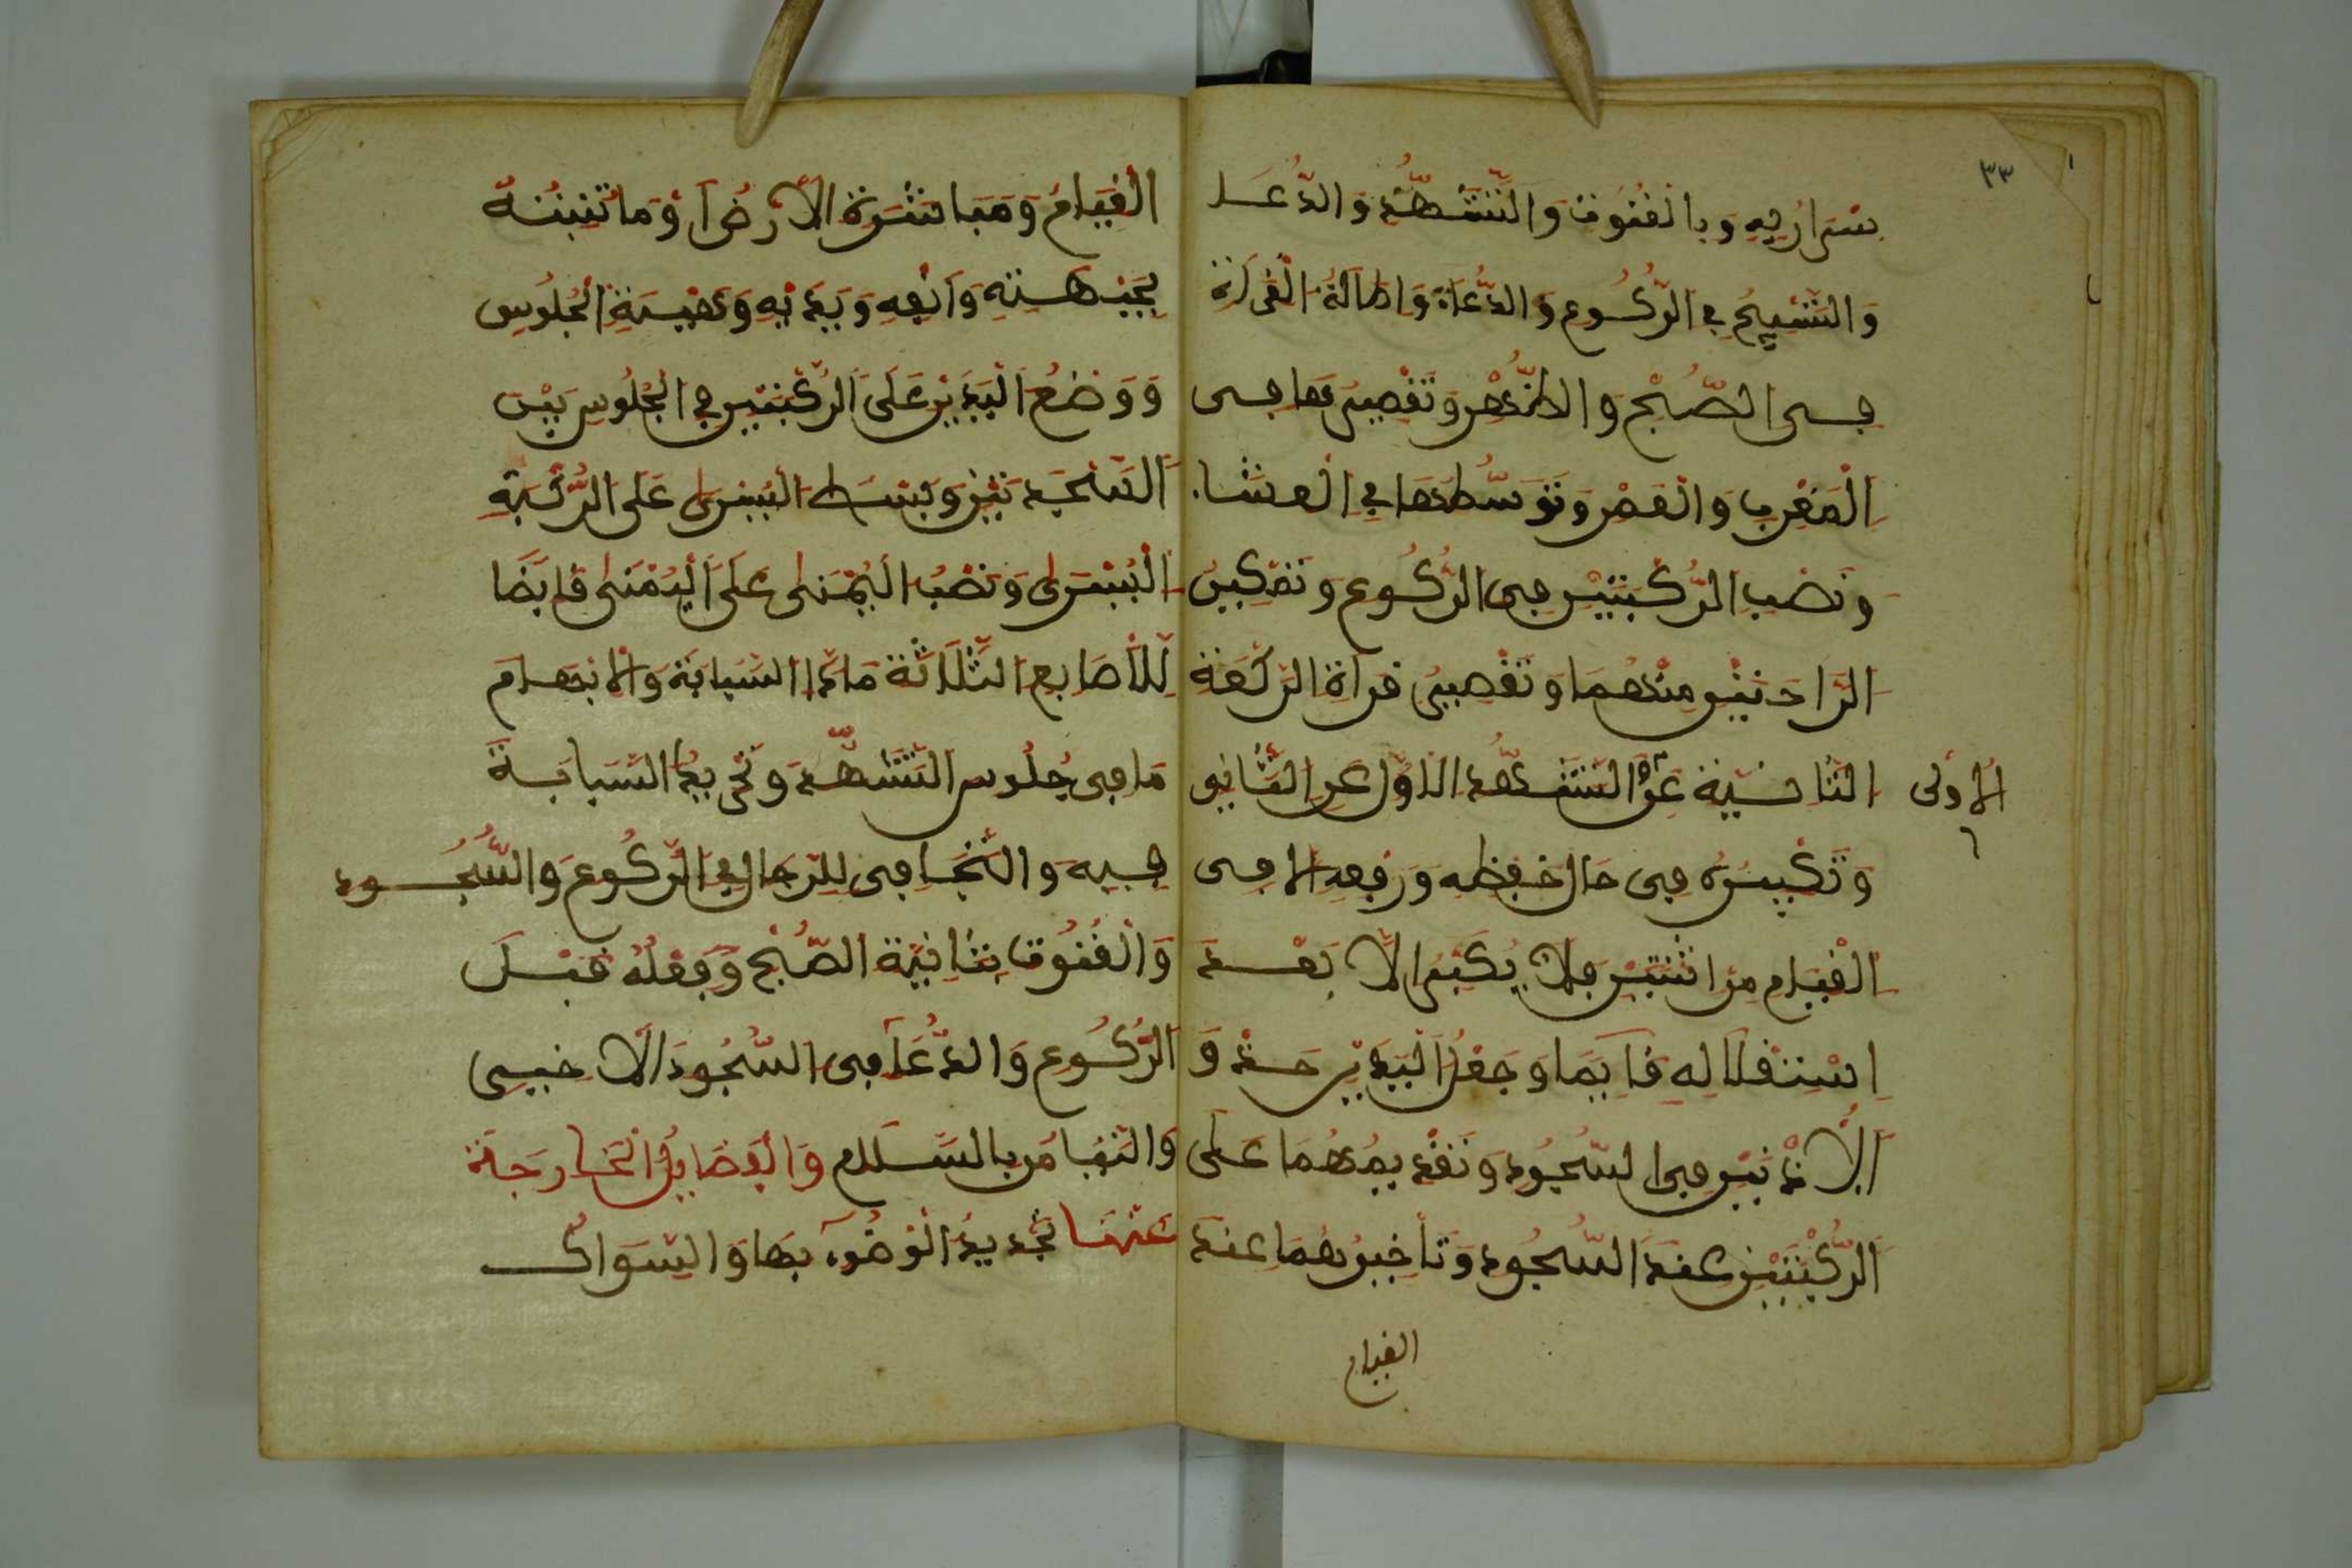 ٣٣
سراريه وبالقنوت والتشهد والدعا
والتسبيح في الركوع والدعاء واطالة القراة
في الصبح والظهر وتقصيرها في
المغرب والعصر وتوسطها في العشاء
ونصب الركبتين في الركوع وتمكين
الراحتين منهما وتقصير قراة الركعة
الثانية عن التشهد الاول عن الثاني
الاولى
وتكبيره في حال خفظه ورفعه الا في
القيام من اثنتين فلا يكبر الا بعد
استقلاله قايما وجعل اليدين حذو
الاذنين في السجود وتقديمهما على
الركبتين عند السجود وتاخيرهما عند
القيام
القيام ومباشرة الارض او ما تنبته
بجبهته وانفه ويديه وهيئة الجلوس
ووضع اليدين على الركبتين في الجلوس بين
السجدتين وبسط اليسرى على الركبة
اليسرى ونصب اليمنى على اليمنى قابضا
للاصابع الثلاثة ماعدا السبابة والابهام
ما في جلوس التشهد وتحريك السبابة
فيه والتجافي للرجال في الركوع والسجود
والقنوت بثانية الصبح وفعله قبل
الركوع والدعآ في السجود الاخير
والتيامن بالسلام والفضايل الخارجة
عنها تجديد الوضوء بها والسواك